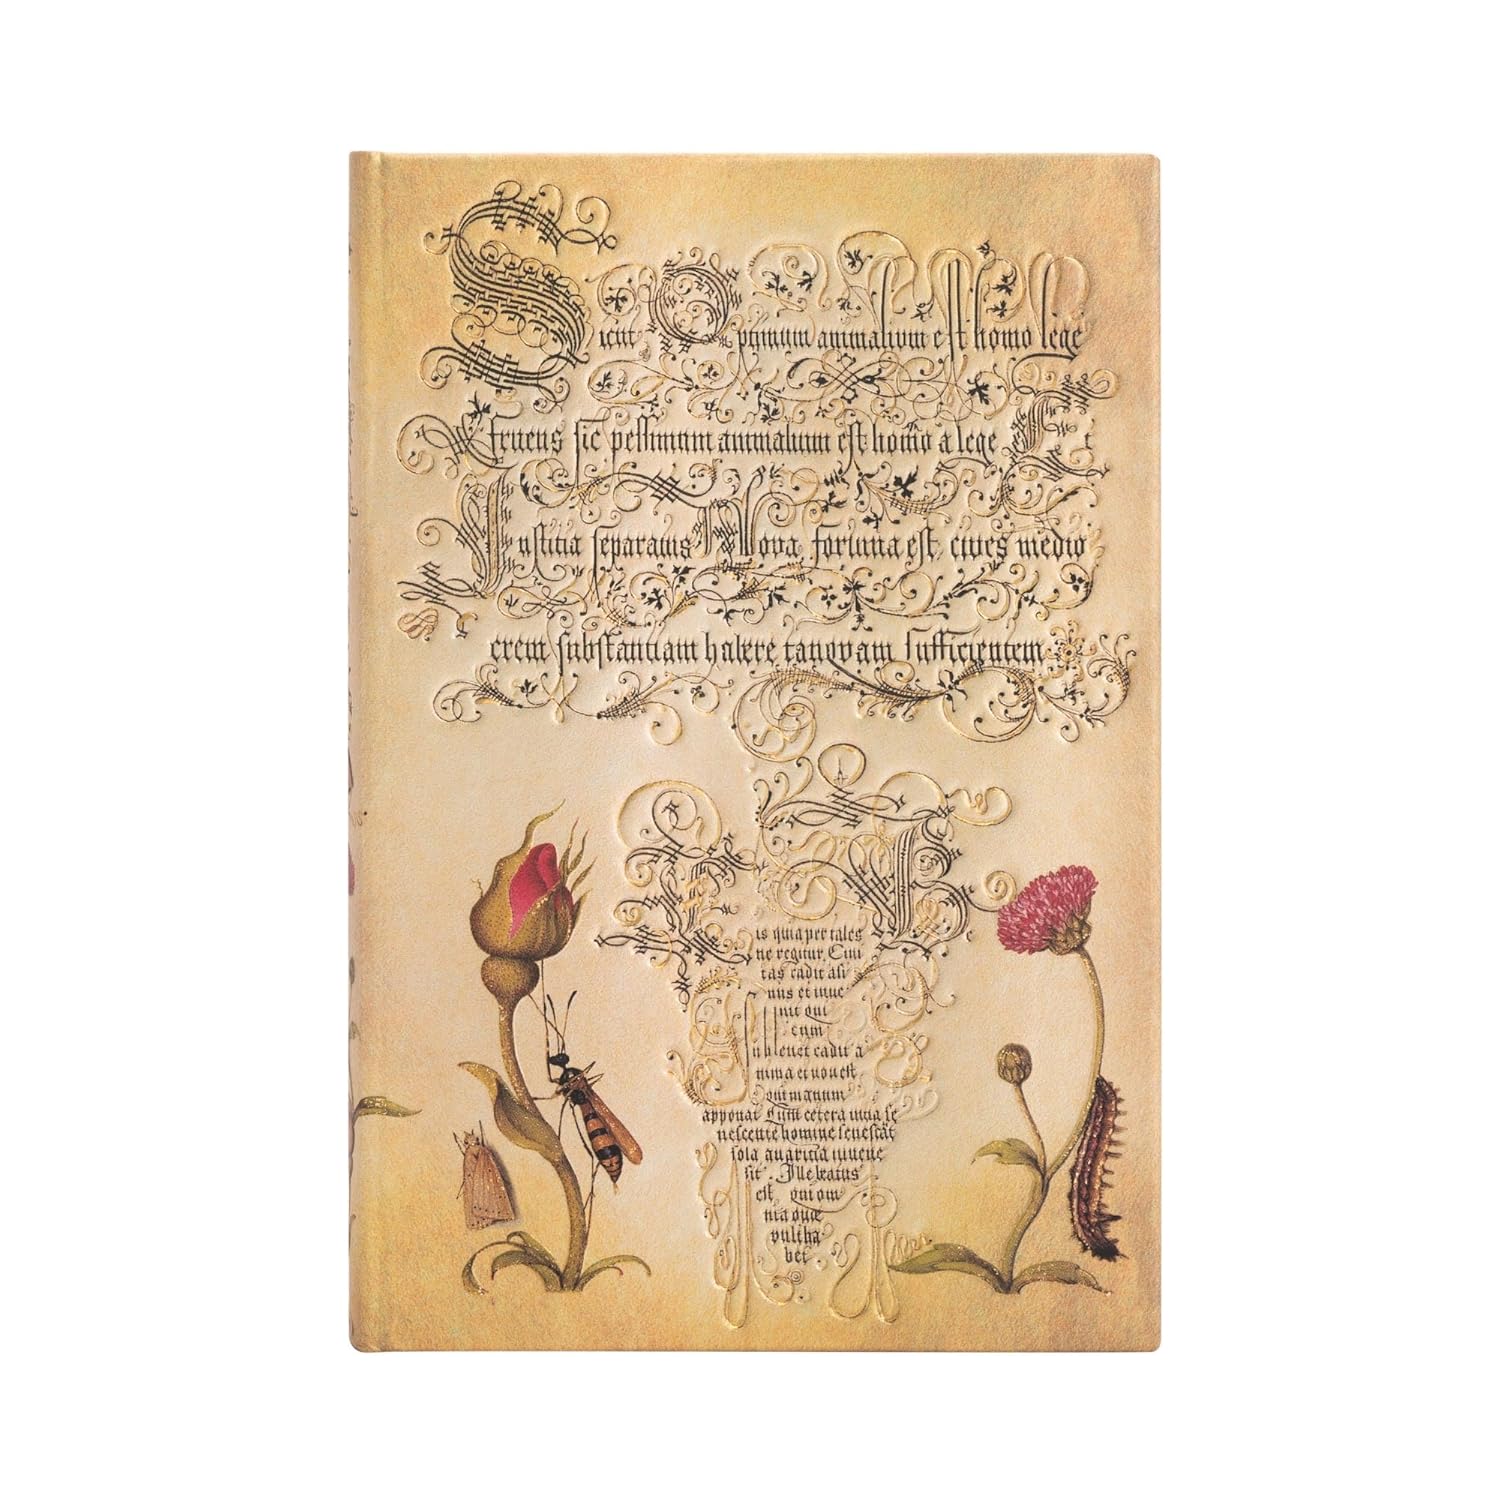 Sicut Optimum animalium est homo lege
fruens sic pessimum animalium est homo a lege Et
Iustitia separatus Nova fortuna est, cives medio
crem substantiam habere tanquam sufficientem
His quia per tales Be
ne regitur, Civi
tas cadit asi
nus et inue
nit qui
eum
subleuet cadit a
nima et non est
qui manum
apponat Cum cetera uitia se
nescente homine senescāt
sola auaritia iuuene
sit. Ille beatus
est, qui om
nia quæ
vult ha
bet.